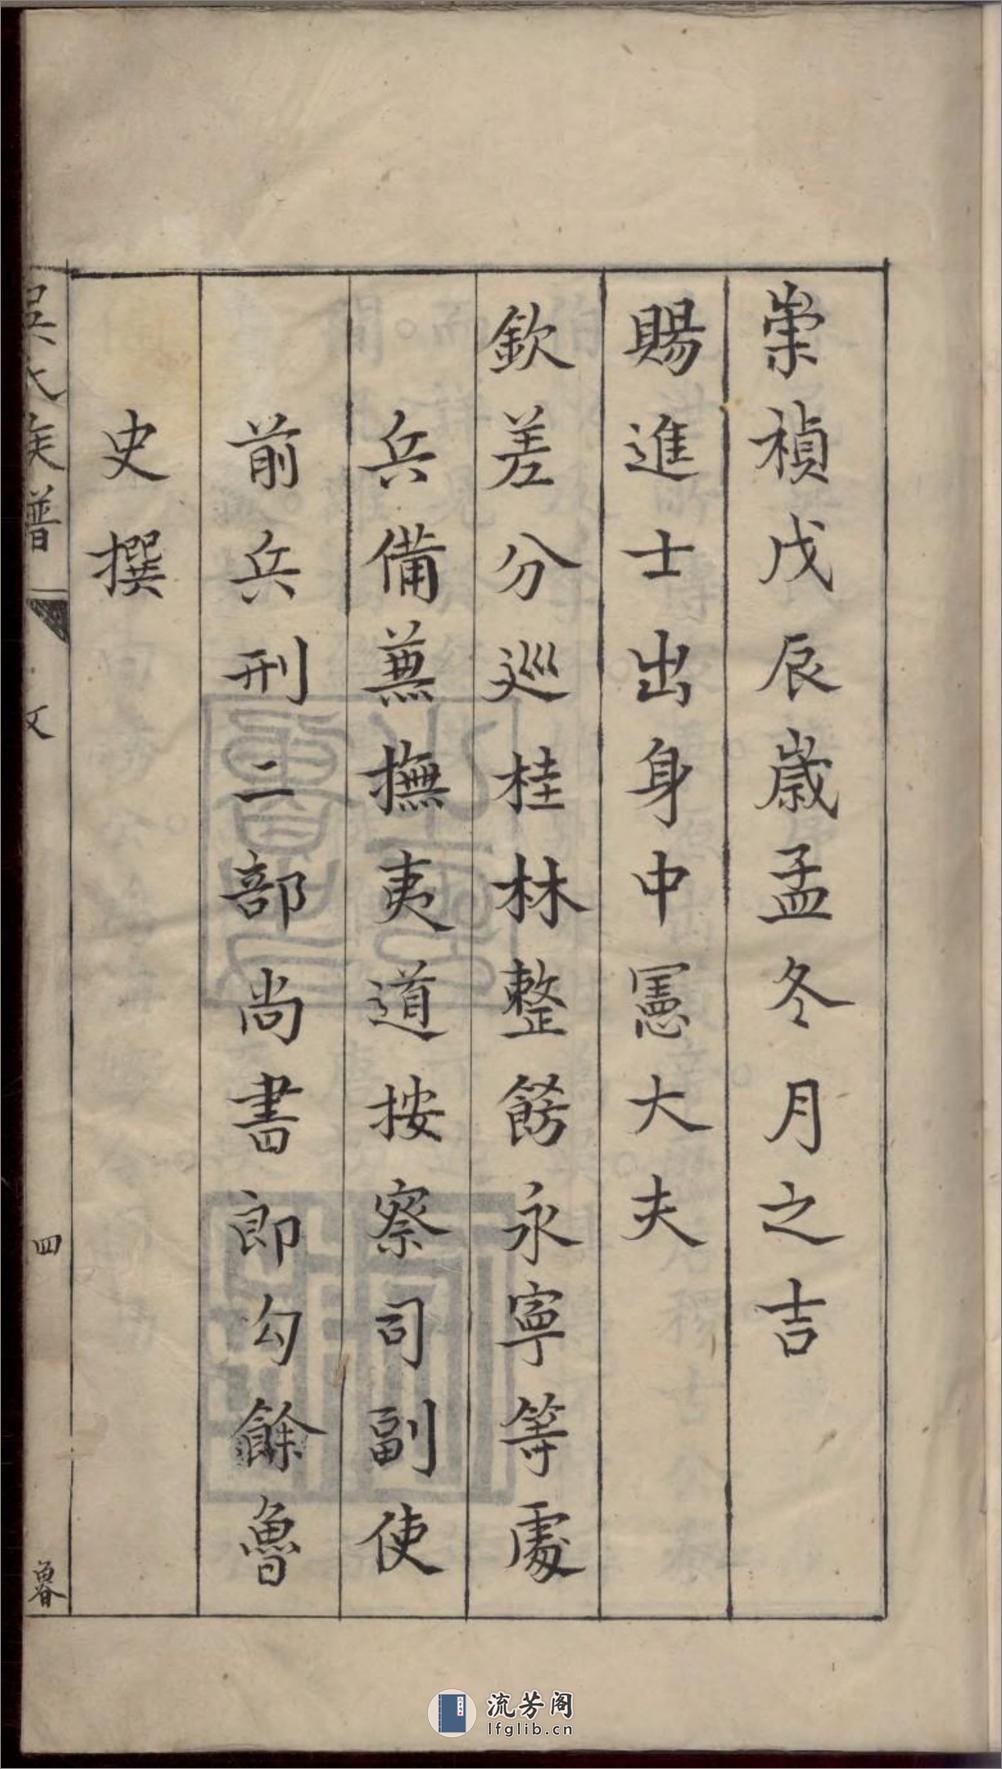 崇禎戊辰歲孟冬月之吉
賜進士出身中憲大夫
欽差分巡桂林整飭永寧等處
兵備兼撫夷道按察司副使
前兵刑二部尚書郎勾餘魯
史撰
吳氏族譜
文
四
流芳阁
lfglib.cn